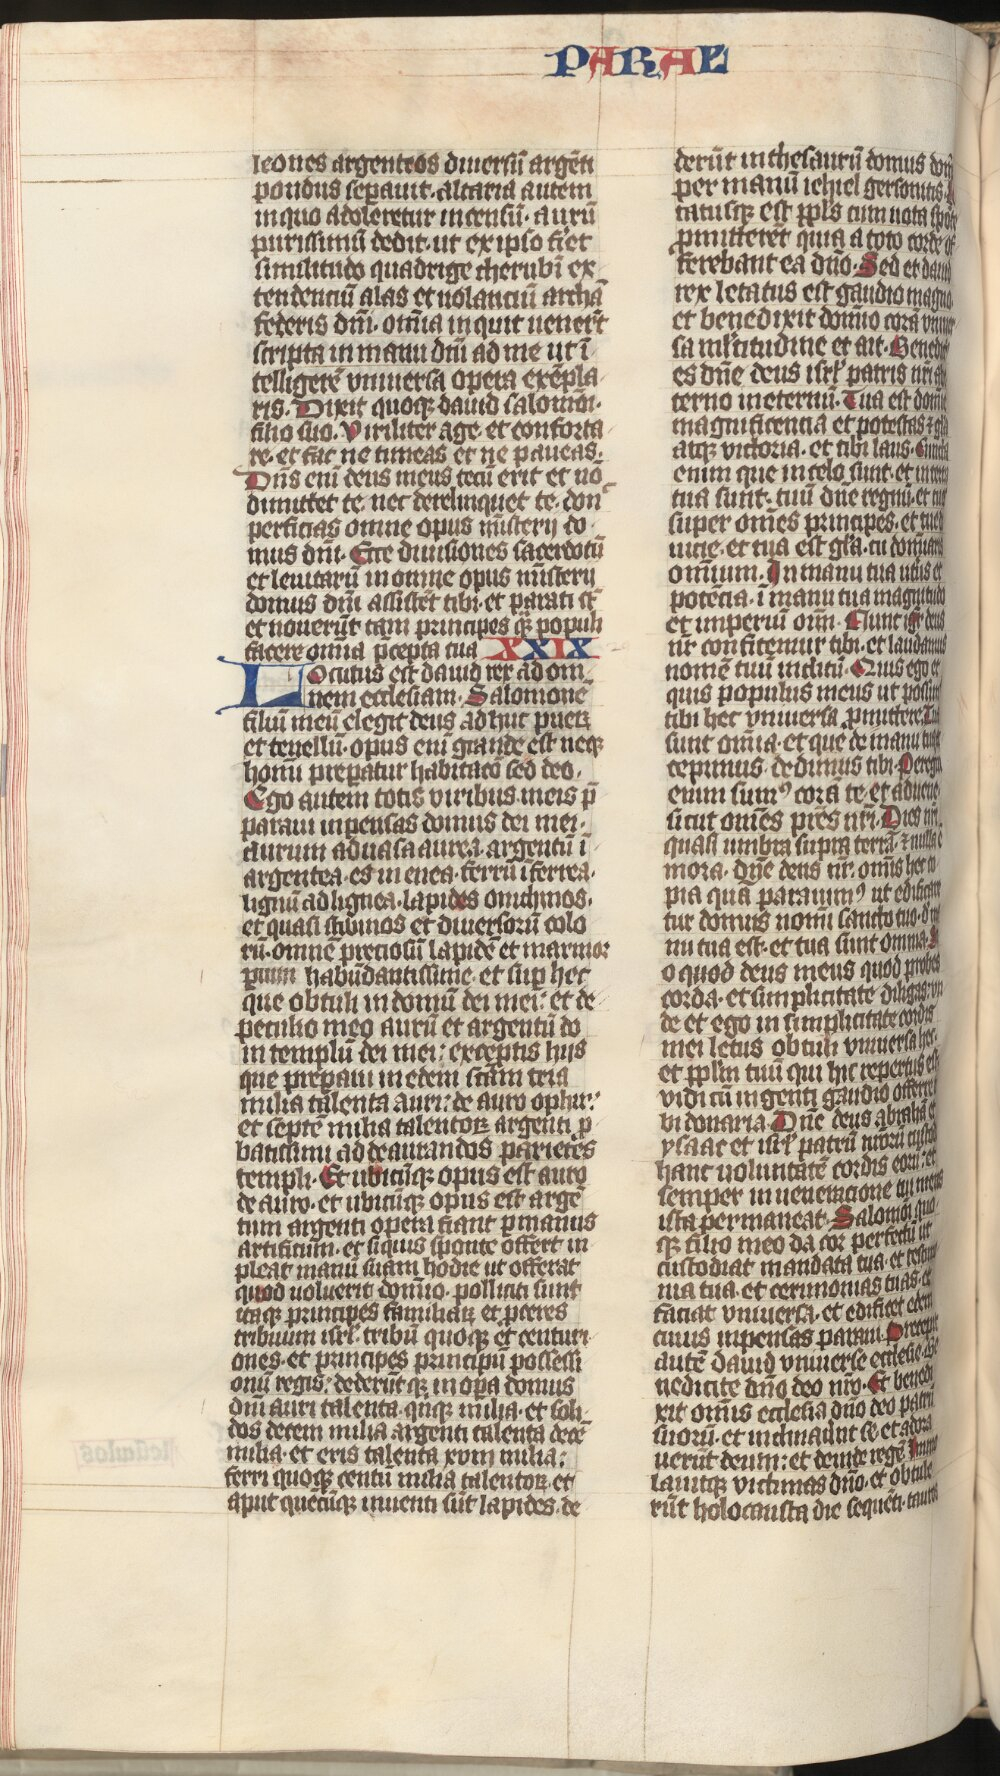 PARAL
leones argenteos diuersū argēti
pondus sepauit. altaria autem
in quo adoleretur incensū. aurū
purissimū dedit. ut ex ipso fi̾et
similitudo quadrige cherubī ex
tendenciū alas et uolanciū archā
federis dn̄i. om̄ia inquit uener̄t
scripta in manu dn̄i ad me ut ī
telligerē vniuersa opera exēpla
ris. Dixit quoqꝫ dauid salomōi.
filio suo. Viriliter age et conforta
re. et fac ne timeas et ne paueas.
Dn̄s eni deus meus tecū erit et nō
dimittet te. nec derelinquet te. don̄
perficias omne opus mīsterij do
mus dn̄i. Ecce diuisiones sacerdotū
et leuitarū in omne opus mīsterij
domus dn̄i assistēt tibi. et parati st̄
et nouerūt tam principes qꝫ populi
facere omīa p̄cepta tua XXIX
Locutus est dauid rex ad om
nem ecclesiam. Salomonē
filiū meū elegit deus ad huc pueꝝ
et tenellū. opus eni grande est neqꝫ
homī prepatur habitacō sed deo.
Ego autem totis viribus meis p̄
paraui inpensas domus dei mei.
aurum ad uasa aurea. argentū ī
argentea. es in enea. ferrū ī ferrea.
lignū ad lignea. lapides onichinos.
et quasi stibinos et diuersorū colo
rū. omnē preciosū lapidē et marmor
parium habūdantissime. et sup hec
que obtuli in domū dei mei: et de
peculio meo aurū et argentū do
in templū dei mei: exceptis hijs
que prepaui in edem sc̄am tria
milia talenta auri: de auro ophir:
et septē milia talentoꝝ argenti p̄
batissimi ad deaurandos parietes
templi. Et ubicūqꝫ opus est auro
de auro. et ubicūqꝫ opus est argē
tum argenti opera fiant ꝑ manus
artificum. et siquis sponte offert in
pleat manū suam hodie ut offerat
quod voluerit domīo. polliciti sunt
itaqꝫ principes familiaꝝ et ꝓceres
tribuum isrl̄. tribū quoqꝫ et centuri
ones. et principes principū possessi
onū regis: dederūt qꝫ in opa domus
dn̄i auri talenta. qīqꝫ milia. et soli
dos decem milia argenti talenta decē
milia. et eris talenta xvm milia:
ferri quoqꝫ centū milia talentoꝝ. et
aput quēcūqꝫ inuenti sūt lapides. de
derūt in thesaurū domus dn̄i
per manū iehiel gersonitis.
tatusqꝫ est ppl̄s cum uota spōte
ꝓmitterēt quia a toto corde of
ferebant ea dn̄o. Sed et dauid
rex letatus est gaudio magno.
et benedixit domīo corā vniuer
sa mltitudine et ait. Benedict
es dn̄e deus isrl̄ patris nr̄i ab
terno in eternū. Tua est domīe
magnificentia et potestas ⁊ gl̄a
atqꝫ victoria. et tibi laus. Cuncta
enim que in celo sunt. et in terra
tua sunt. tuū dn̄e regnū. et tu es
super om̄es principes. et tue di
uicie. et tua est gl̄a. tu domīaris
omīum. In manu tua uirtus et
potēcia. ī manu tua magnitudo
et imperiū oīm. Nunc igr̄ deus
nr̄ confitemur tibi. et laudamus
nomē tuū inclitū. Quis ego et
quis populus meus ut possim
tibi hec vniuersa ꝓmittere. Tua
sunt omīa. et que de manu tua
cepimus. dedimus tibi. Peregri
enim sumꝰ corā te. et aduene
sicut om̄es pr̄es nr̄i. Dies nr̄i
quasi umbra supra terrā. ⁊ nulla ē
mora. Dn̄e deus nr̄. omīs hec co
pia quā parauimꝰ ut edificare
tur domus nomī sancto tuo. de ma
nu tua est. et tua sunt omnia. Sci
o quod deus meus quod probes
corda. et simplicitatē diligas. vn
de et ego in simplicitate cordis
mei letus obtuli vniuersa hec.
et ppl̄m tuū qui hic repertus est
vidi cū ingenti gaudio offerre t
bi donaria. Dn̄e deus abrahā et
ysaac et isrl̄ patrū nr̄orū custodi
hanc uoluntatē cordis eorū. et
semper in ueneracione tui mens
ista permaneat. Salomōi quo
qꝫ filio meo da cor perfectū ut
custodiat mandata tua. et testimo
nia tua. et cerimonias tuas. et
faciat vniuersa. et edificet edem
cuius inpensas paraui. Precepit
autē dauid vniuerse ecclesie. be
nedicite dn̄o deo nr̄o. Et benedi
xit omīs ecclesia dn̄o deo patrū
suorū. et inclinaūt se. et adora
uerūt deum: et deinde regē Immo
laūtqꝫ victimas dn̄o. et obtule
rūt holocausta die sequēti. tauros